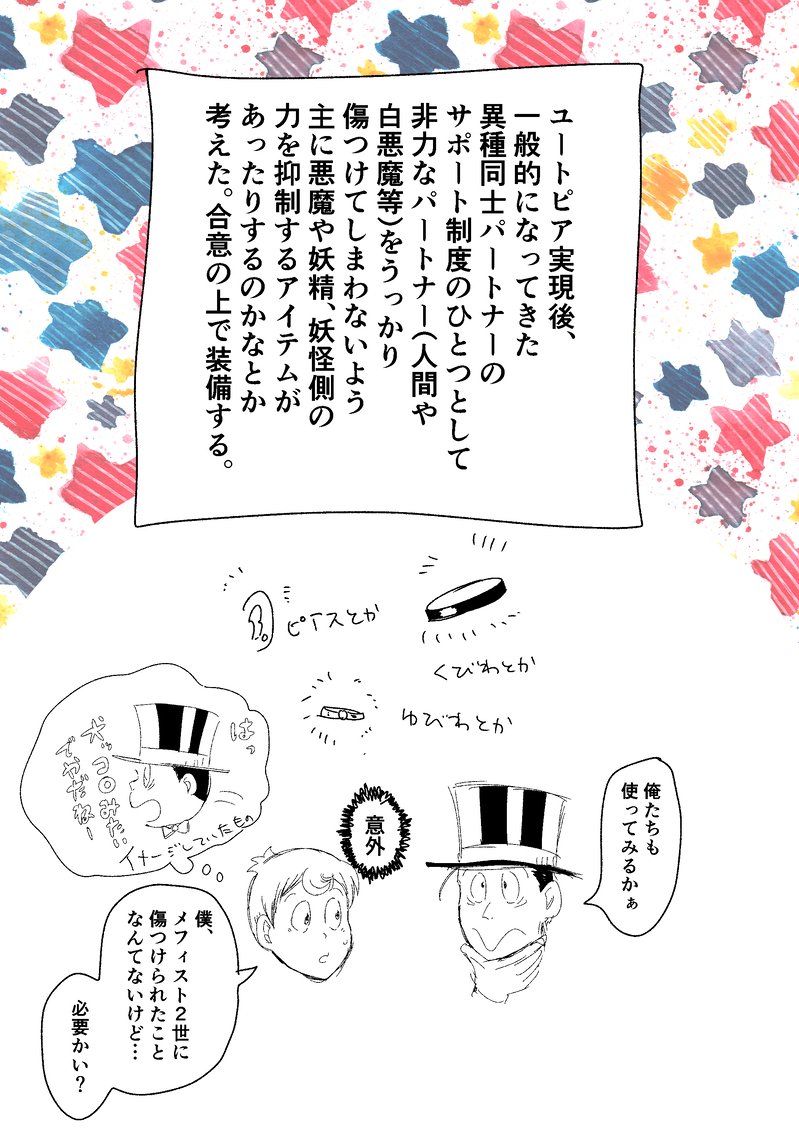 ユートピア実現後、
一般的になってきた
異種同士パートナーの
サポート制度のひとつとして
非力なパートナー（人間や
白悪魔等）をうっかり
傷つけてしまわないよう
主に悪魔や妖精、妖怪側の
力を抑制するアイテムが
あったりするのかなとか
考えた。合意の上で装備する。
ピアスとか
くびわとか
ゆびわとか
俺たちも
使ってみるかぁ
意外
はっ
犬ッコロみたい
でやだねー
イメージしていたもの
僕、
メフィスト２世に
傷つけられたこと
なんてないけど…
必要かい？